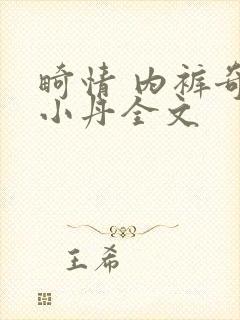 畸情 内裤奇
小丹全文
王希